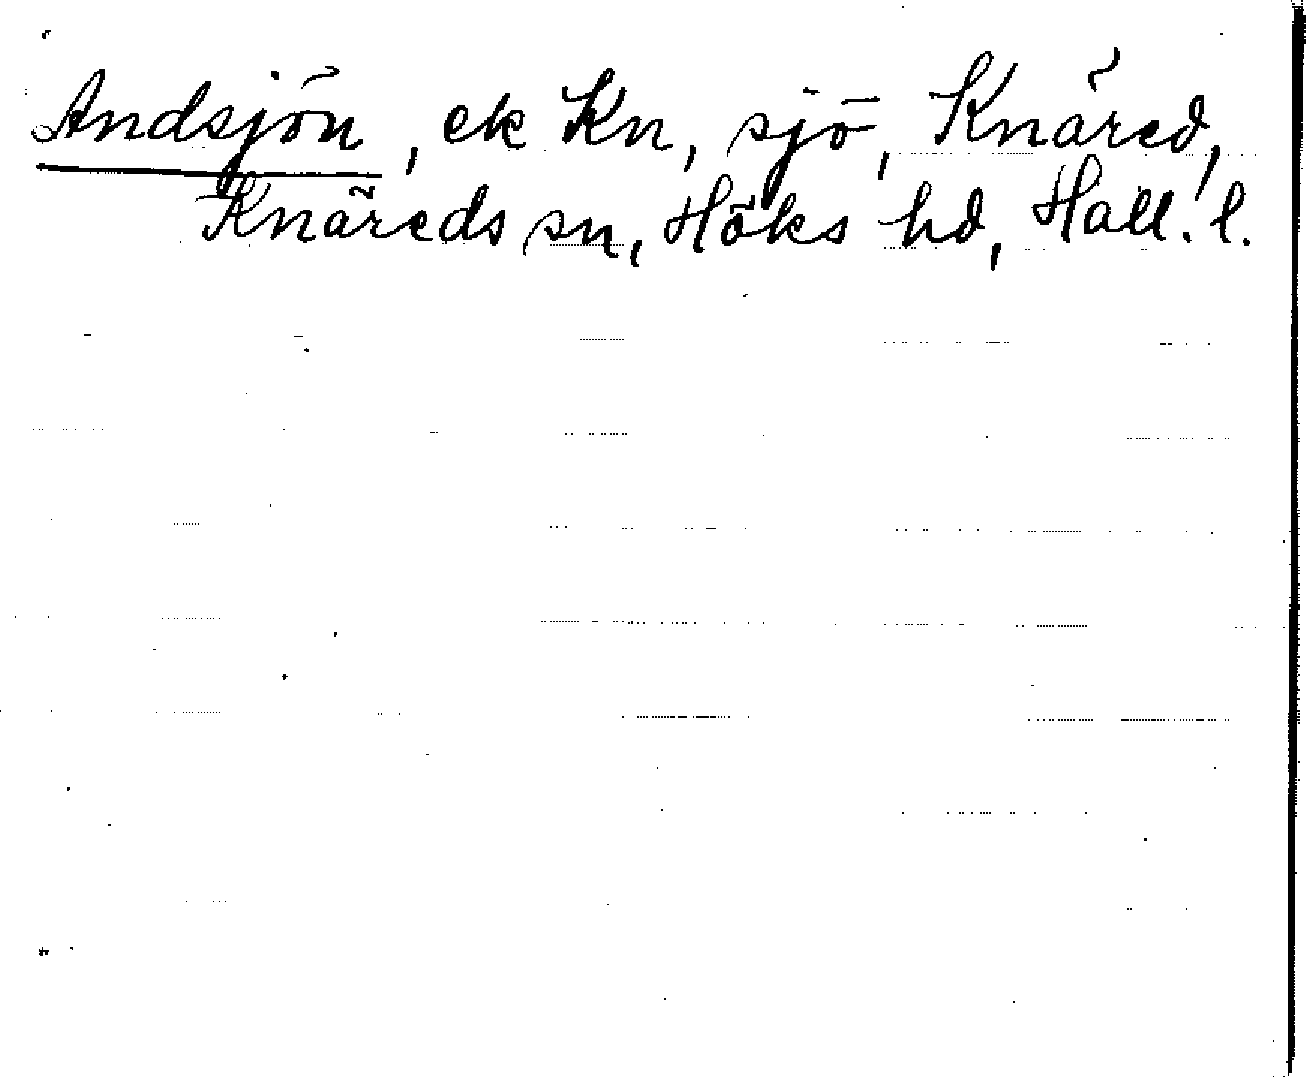 Andsjön, ek Kn, sjö, Knäred,
Knäreds sn, Höks hd, Hall. l.